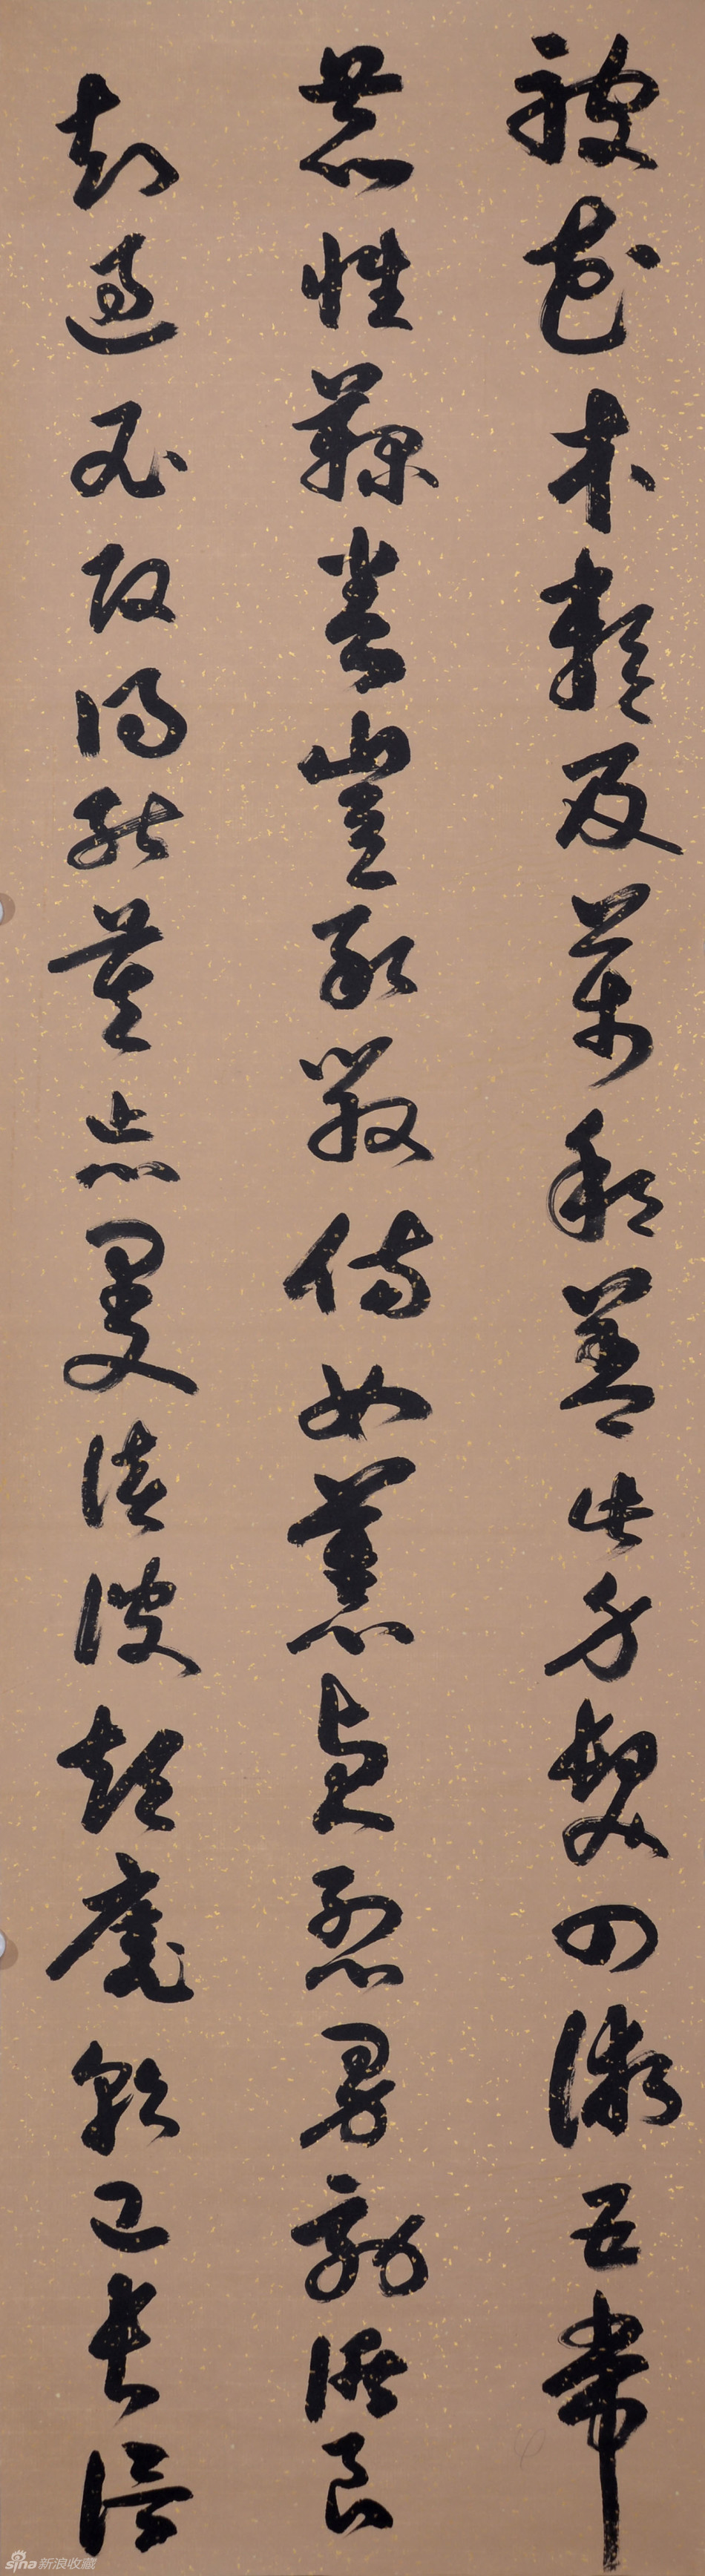 被草木賴及萬方蓋此身髮四大五常
恭惟鞠養豈敢毀傷女慕貞烈男效才良
知過必改得能莫忘罔談彼短靡恃己長信
sina新浪收藏